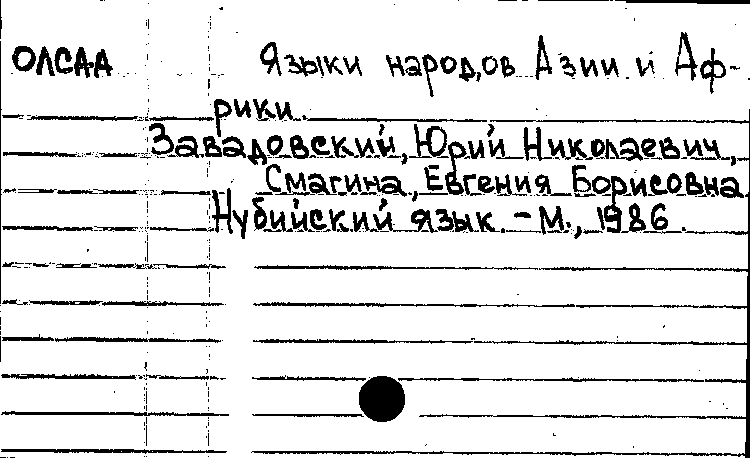 ОЛСАА Языки народов Азии и Аф-
рики.
Завадовский, Юрий Николаевич,
Смагина, Евгения Борисовна
Нубийский язык. - М., 1986.